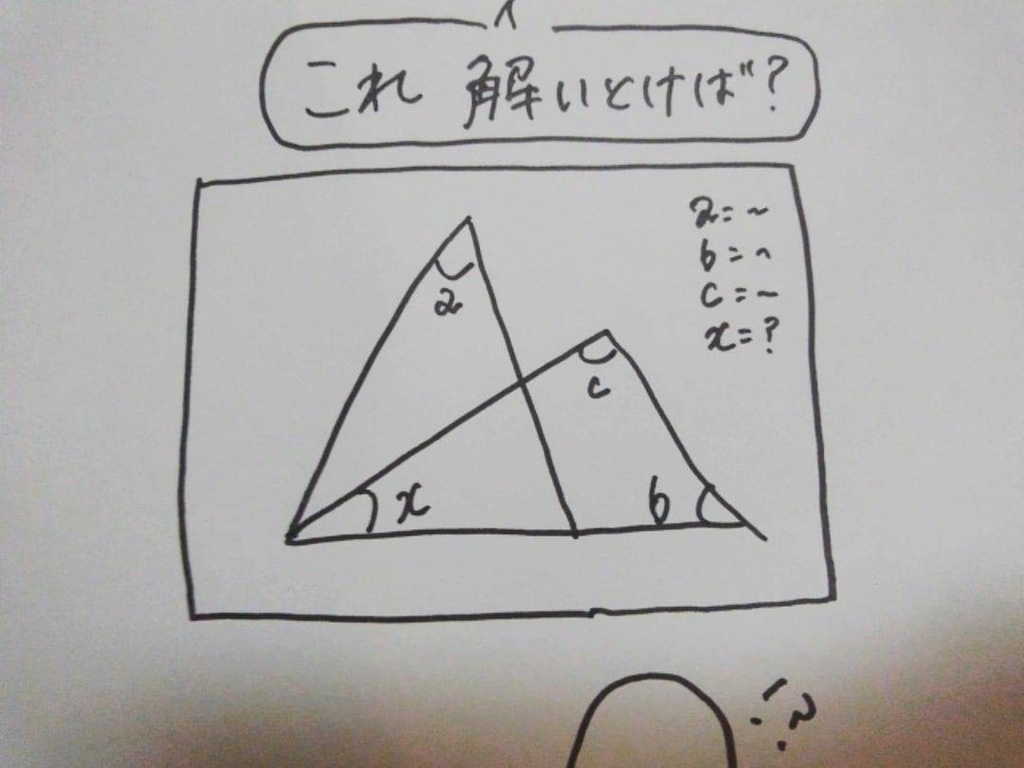 これ 解いとけば?
a=~
b=~
c=~
x=?
a
c
x
b